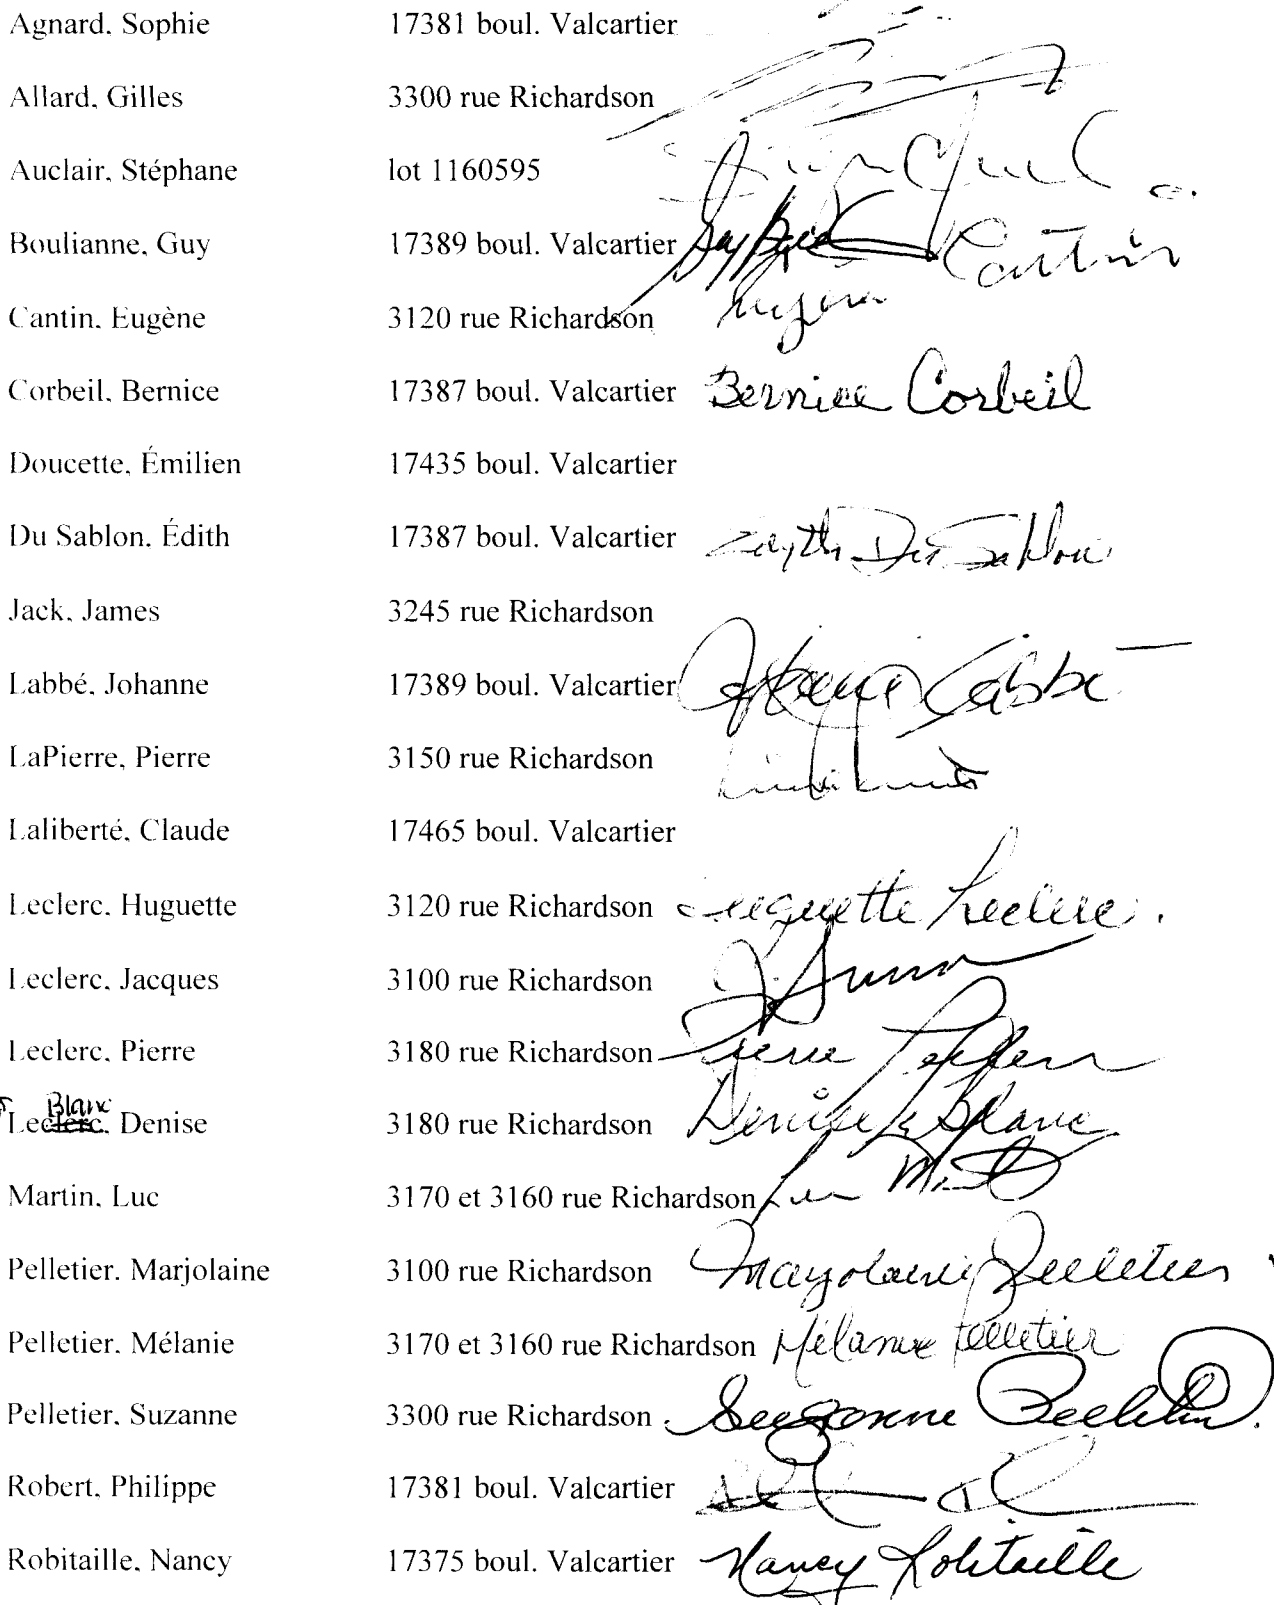 Agnard, Sophie 17381 boul. Valcartier
Allard, Gilles 3300 rue Richardson
Auclair, Stéphane lot 1160595
Boulianne, Guy 17389 boul. Valcartier Guy
Cantin
Cantin, Eugène 3120 rue Richardson Eugène
Corbeil, Bernice 17387 boul. Valcartier Bernice Corbeil
Doucette, Émilien 17435 boul. Valcartier
Du Sablon, Édith 17387 boul. Valcartier Edyth Du Sablon
Jack, James 3245 rue Richardson
Labbé, Johanne 17389 boul. Valcartier Johanne Labbé
LaPierre, Pierre 3150 rue Richardson
Laliberté, Claude 17465 boul. Valcartier
Leclerc, Huguette 3120 rue Richardson Huguette Leclerc.
Leclerc, Jacques 3100 rue Richardson
Leclerc, Pierre 3180 rue Richardson Pierre
Blanc
Leclerc, Denise 3180 rue Richardson Denise Le Blanc
Martin, Luc 3170 et 3160 rue Richardson Luc
Pelletier, Marjolaine 3100 rue Richardson Marjolaine Pelletier
Pelletier, Mélanie 3170 et 3160 rue Richardson Mélanie Pelletier
Pelletier, Suzanne 3300 rue Richardson Suzanne Pelletier.
Robert, Philippe 17381 boul. Valcartier
Robitaille, Nancy 17375 boul. Valcartier Nancy Robitaille